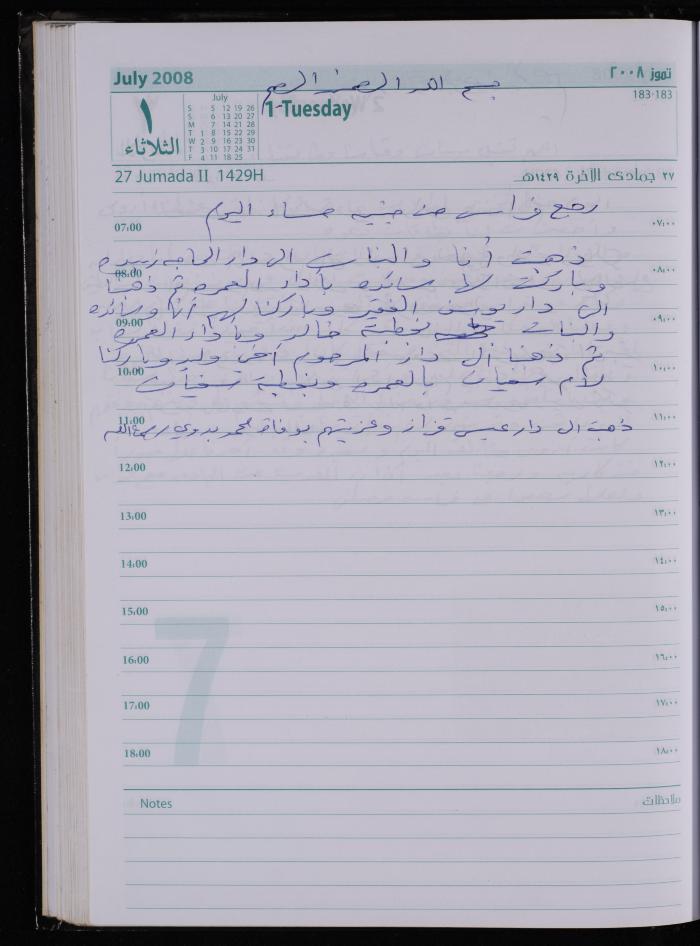 July 2008
تموز ٢٠٠٨
بسم الله الرحمن الرحيم
183-183
١
الثلاثاء
July
S 5 12 19 26
S 6 13 20 27
M 7 14 21 28
T 1 8 15 22 29
W 2 9 16 23 30
T 3 10 17 24 31
F 4 11 18 25
1-Tuesday
27 Jumada II 1429H
٢٧ جمادى الآخرة ١٤٢٩هـ
رجع فراس من جنين مساء اليوم
07:00
٠٧:٠٠
ذهبت أنا والبنات الى دار الحاجه زبيده
08:00
٠٨:٠٠
وباركت لا سائده بأداء العمره ثم ذهبنا
الى دار يوسف الفقير وباركنا لهم أنا وسائده
09:00
٠٩:٠٠
والبنات بخطبة خالد وبأداء العمره
ثم ذهبنا الى دار المرحوم أخي وليد وباركنا
10:00
١٠:٠٠
لأم سفيان بالعمره وبخطبة سفيان
11:00
١١:٠٠
ذهبت الى دار عيسى قزاز وعزيتهم بوفاة محمد بدوي رحمه الله
12:00
١٢:٠٠
13:00
١٣:٠٠
14:00
١٤:٠٠
15:00
١٥:٠٠
16:00
١٦:٠٠
17:00
١٧:٠٠
18:00
١٨:٠٠
7
Notes
ملاحظات